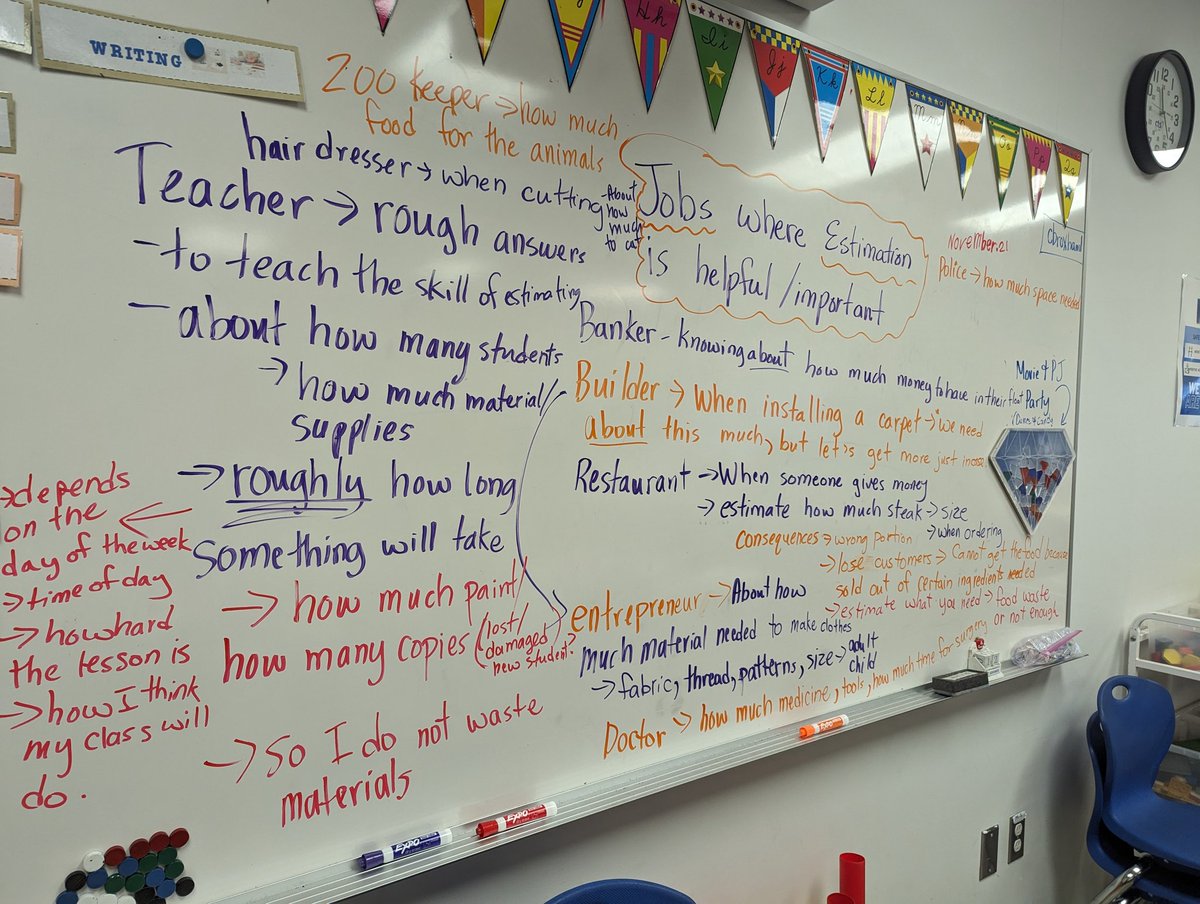 WRITING
Hh
Ii
Jj
Kk
Ll
Pp
zoo keeper → how much
food for the animals
hair dresser → when cutting
-About
how
much
to cut
Jobs where Estimation
is helpful/important
November.21
Police → how much space needed
Teacher → rough answers
-to teach the skill of estimating
-about how many students
→ how much material/
supplies
→ roughly how long
something will take
→ depends
on the
day of the week
→ time of day
→ how hard
the lesson is
→ how I think
my class will
do.
→ how much paint/
how many copies (lost/
damaged
new student?
→ so I do not waste
materials
Banker - Knowing about how much money to have in their float
Movie & PJ
Party
Builder → When installing a carpet → "we need
about this much, but let's get more just incase
Restaurant → When someone gives money
→ estimate how much steak → size
→ when ordering
consequences → wrong portion
→ lose customers → Cannot get the food because
sold out of certain ingredients needed
→ estimate what you need → food waste
or not enough
entrepreneur → About how
much material needed to make clothes
→ fabric, thread, patterns, size → adult
child
Doctor → how much medicine, tools, how much time for surgery
EXPO
EXPO